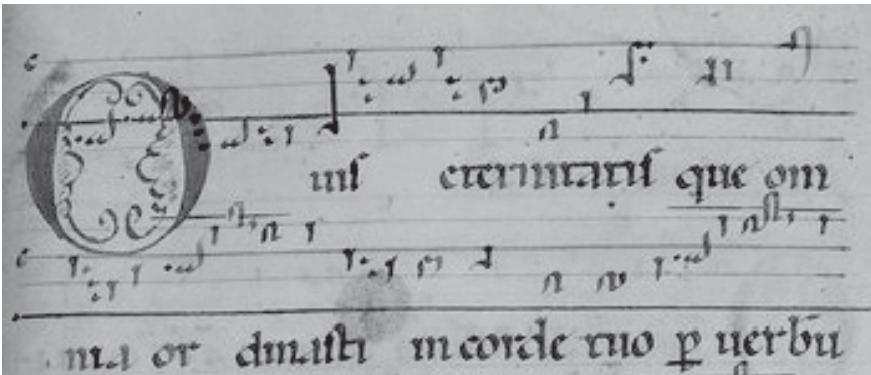 O uis eternitatis que om
nia or dinasti in corde tuo ꝑ uerbū